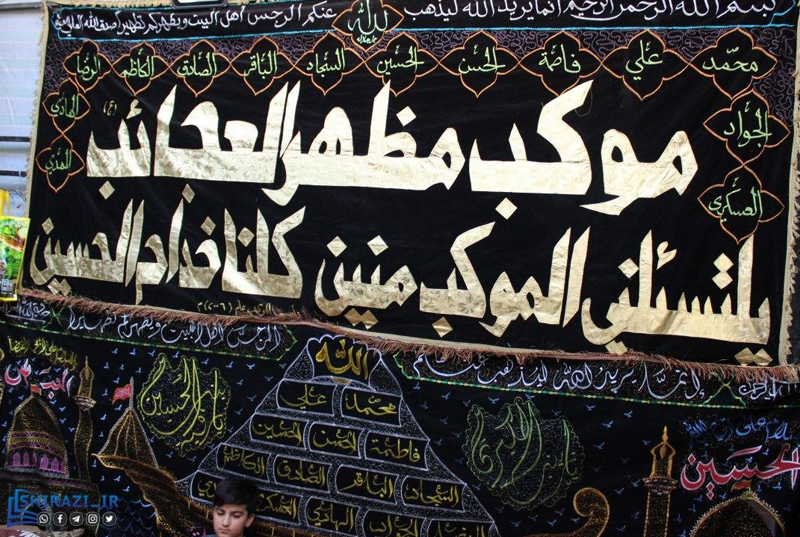 بسم الله الرحمن الرحيم انما يريد الله ليذهب عنكم الرجس اهل البيت ويطهركم تطهيرا صدق الله العلي العظيم
الله
جل جلاله
محمد علي فاطمة الحسن الحسين السجاد الباقر الصادق الكاظم الرضا
الجواد الهادي
العسكري المهدي
موكب مظهر العجائب
(ع)
يلتسئلني الموكب منين كلنا خدام الحسين
انما يريد الله ليذهب عنكم
الرجس اهل البيت ويطهركم تطهيرا
الله
محمد علي
فاطمة الحسن الحسين
السجاد الباقر الصادق الكاظم
الجواد الهادي العسكري
يا قمر
الحسين
SHIRAZI_IR